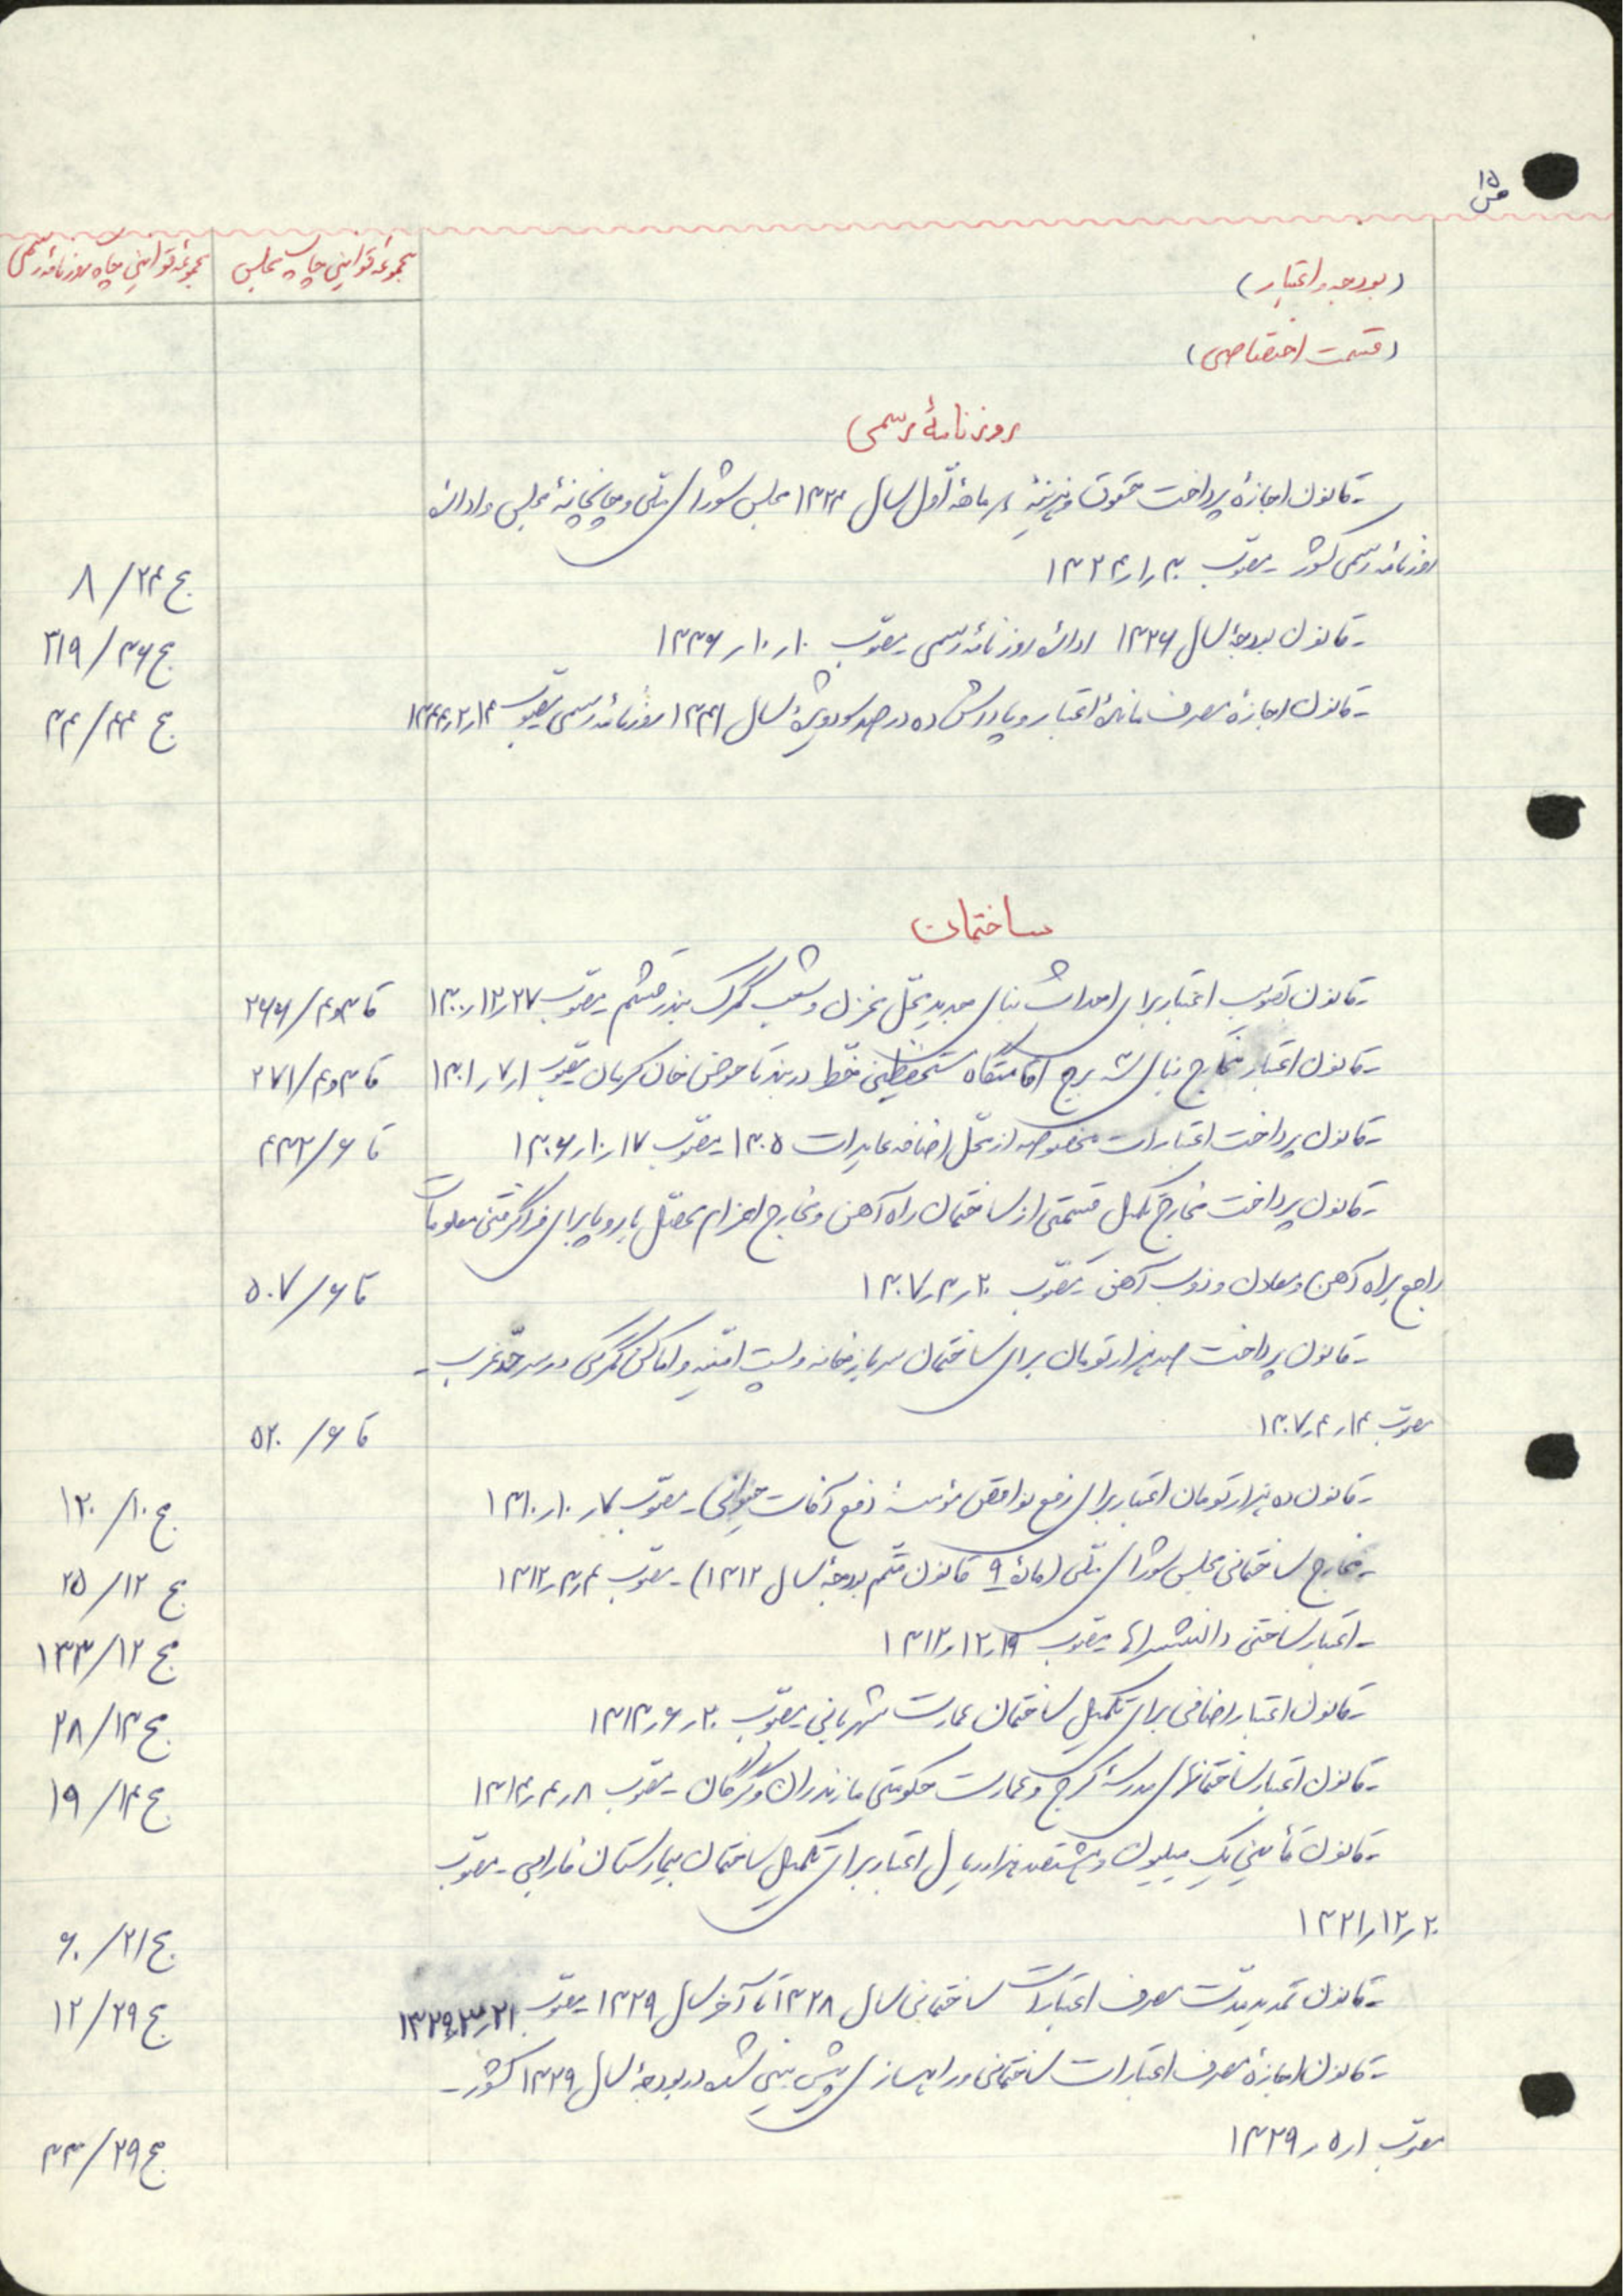 ص ۱۵
مجموعهٔ قوانین چاپ مجلس
مجموعهٔ قوانین چاپ روزنامهٔ رسمی
(بودجه و اعتبار)
(قسمت اختصاصی)
روزنامهٔ رسمی
-قانون اجازهٔ پرداخت حقوق و هزینهٔ سه ماههٔ اوّل سال ۱۳۲۴ مجلس شورای ملّی و چاپخانهٔ مجلس و ادارهٔ
روزنامهٔ رسمی کشور -مصوّب ۳۰ر۱ر۱۳۲۴ ج ۲۴/ ۸
-قانون بودجهٔ سال ۱۳۳۶ ادارهٔ روزنامهٔ رسمی -مصوّب ۱۰ر۱۰ر۱۳۳۶ ج ۳۶/ ۳۱۹
-قانون اجازهٔ مصرف ماندهٔ اعتبار و پاداش ده درصد سود ویژهٔ سال ۱۳۴۱ روزنامهٔ رسمی -مصوّب ۱۴ر۲ر۱۳۴۴ ج ۴۴/ ۳۴
ساختمان
-قانون تصویب اعتبار برای احداث بنای جدید محلّ نمزل و شعب گمرک بندر قشم -مصوّب ۲۷ر۱۲ر۱۳۰۰ قا ۳و۴/ ۲۶۶
-قانون اعتبار مخارج بنای سه برج اقامتگاه مستحفظین خطّ دربند تا حوض خان کرمان -مصوّب ۱ر۷ر۱۳۰۱ قا ۳و۴/ ۲۷۱
-قانون پرداخت اعتبارات مخصوصه از محلّ اضافه عایدات ۱۳۰۵ -مصوّب ۱۷ر۱۰ر۱۳۰۶ قا ۶/ ۴۳۲
-قانون پرداخت مخارج تکمیل قسمتی از ساختمان راه آهن و مخارج اعزام محصّل باروپا برای فراگرفتن معلومات
راجع براه آهن و معادن و ذوب آهن -مصوّب ۲۰ر۳ر۱۳۰۷ قا ۶/ ۵۰۷
-قانون پرداخت صد هزار تومان برای ساختمان سربازخانه و پست امنیّه و اماکن گمرکی در سرحدّ غرب-
مصوّب ۱۴ر۴ر۱۳۰۷ قا ۶/ ۵۲۰
-قانون ده هزار تومان اعتبار برای رفع نواقص مؤسسهٔ دفع آفات حیوانی -مصوّب ۷ر۱۰ر۱۳۱۰ ج ۱۰/ ۱۲۰
-مخارج ساختمانی مجلس شورای ملّی (مادهٔ ۹ قانون متّمم بودجهٔ سال ۱۳۱۲) -مصوّب ۴ر۳ر۱۳۱۲ ج ۱۲/ ۲۵
-اعتبار ساختن دانشسراها -مصوّب ۱۹ر۱۲ر۱۳۱۲ ج ۱۲/ ۱۳۳
-قانون اعتبار اضافی برای تکمیل ساختمان عمارت شهربانی -مصوّب ۲۰ر۶ر۱۳۱۳ ج ۱۳/ ۲۸
-قانون اعتبار ساختمانهای مدرسهٔ کرج و عمارت حکومتی مازندران و گرگان -مصوّب ۸ر۴ر۱۳۱۴ ج ۱۴/ ۱۹
-قانون تأمین یک میلیون و هشتصد هزار ریال اعتبار برای تکمیل ساختمان بیمارستان فارابی -مصوّب
۲۰ر۱۲ر۱۳۲۱ ج ۲۱/ ۶۰
-قانون تمدید مدّت مصرف اعتبارات ساختمانی سال ۱۳۲۸ تا آخر سال ۱۳۲۹ -مصوّب ۲۱ر۳ر۱۳۲۹ ج ۲۹/ ۱۲
-قانون اجازهٔ مصرف اعتبارات ساختمانی و راهسازی پیش بینی شده در بودجهٔ سال ۱۳۲۹ کشور-
مصوّب ۱ر۵ر۱۳۲۹ ج ۲۹/ ۳۳